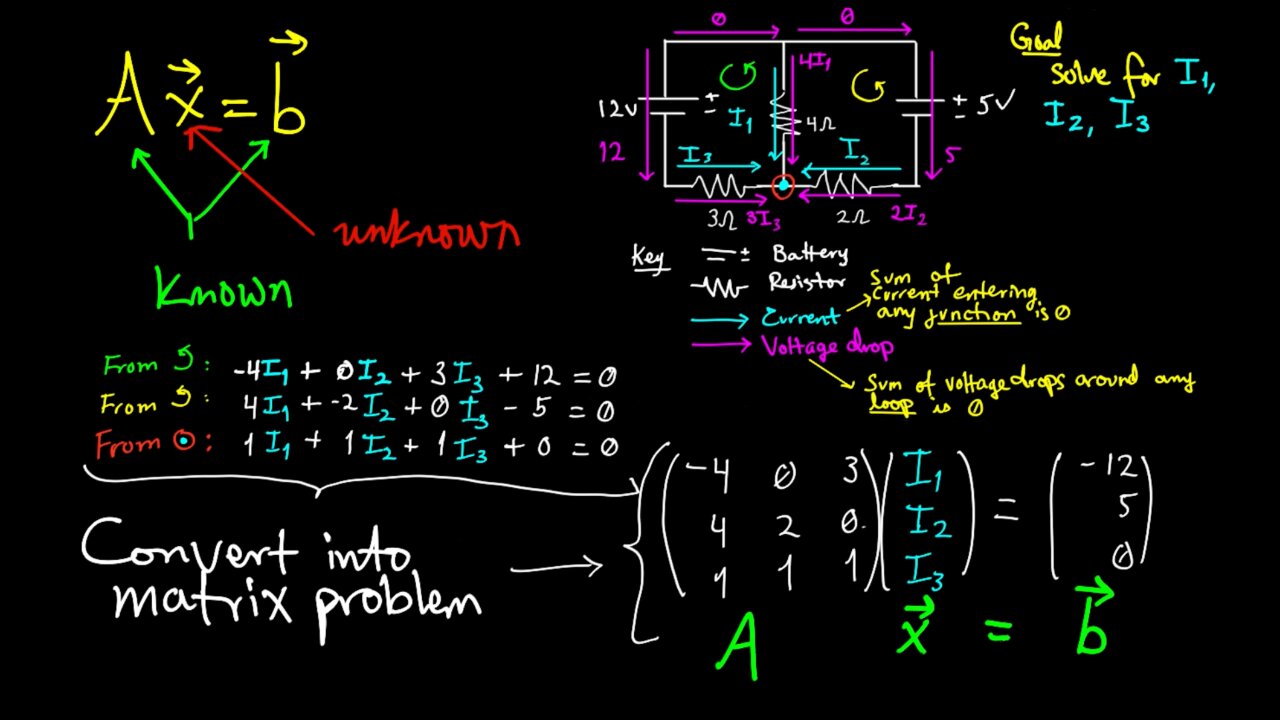 A x⃗ = b⃗
unknown
Known
0
0
12V
±
4I₁
I₁
4Ω
12
I₃
I₂
± 5V
5
3Ω
3I₃
2Ω
2I₂
Goal
solve for I₁,
I₂, I₃
Key
± Battery
Resistor
Current
Voltage drop
Sum of
current entering
any junction is 0
Sum of voltage drops around any
loop is 0
From ↺: -4I₁ + 0I₂ + 3I₃ + 12 = 0
From ↺: 4I₁ + -2I₂ + 0I₃ - 5 = 0
From ⊙: 1I₁ + 1I₂ + 1I₃ + 0 = 0
Convert into
matrix problem
-4 0 3 I₁ = -12
4 2 0 I₂ 5
1 1 1 I₃ 0
A x⃗ = b⃗